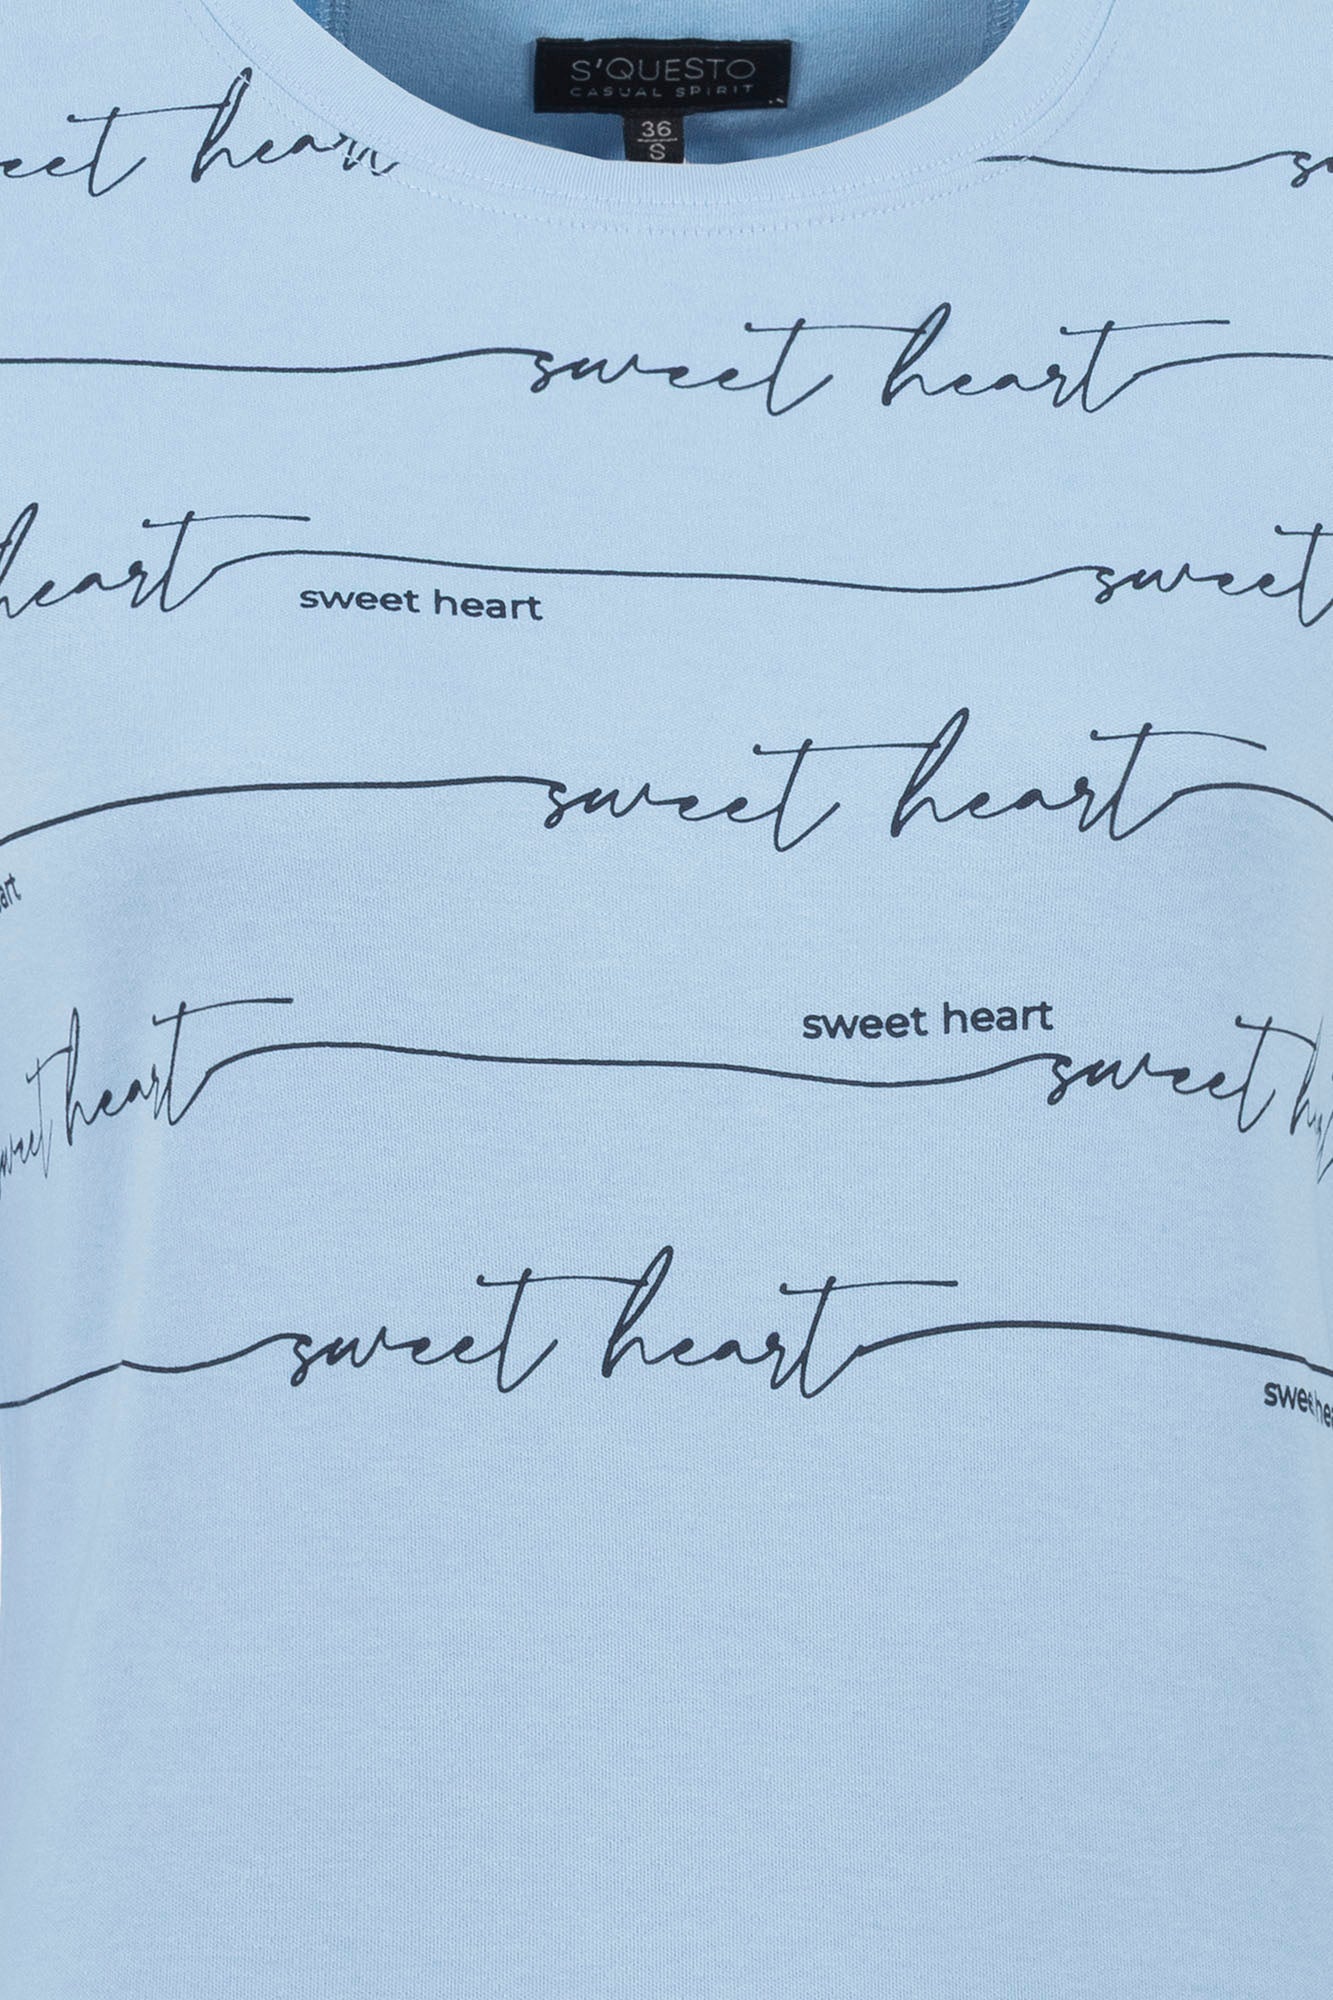 S'QUESTO
CASUAL SPIRIT
36
S
heart
sweet heart
heart sweet
sweet heart
sweet heart
sweet heart
heart sweet
sweet heart
sweet heart